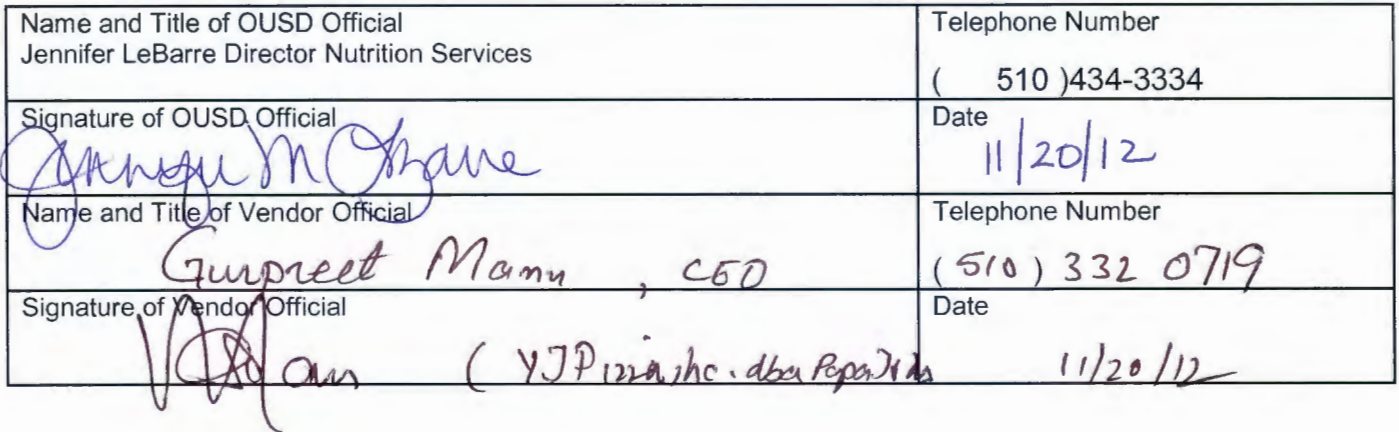 Name and Title of OUSD Official
Jennifer LeBarre Director Nutrition Services
Telephone Number
( 510 )434-3334
Signature of OUSD Official
Date
11/20/12
Name and Title of Vendor Official
Gurpreet Mann , CEO
Telephone Number
(510) 332 0719
Signature of Vendor Official
(YJPizza, Inc. dba Papa
Date
11/20/12